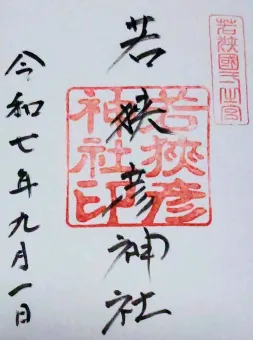 若狹國一之宮
若狭彦神社
若狹彦神社印
令和七年九月一日